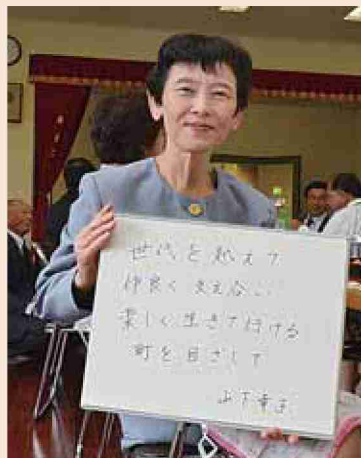 世代を越えて
仲良く支え合い
楽しく生きて行ける
町を目ざして
山下幸子